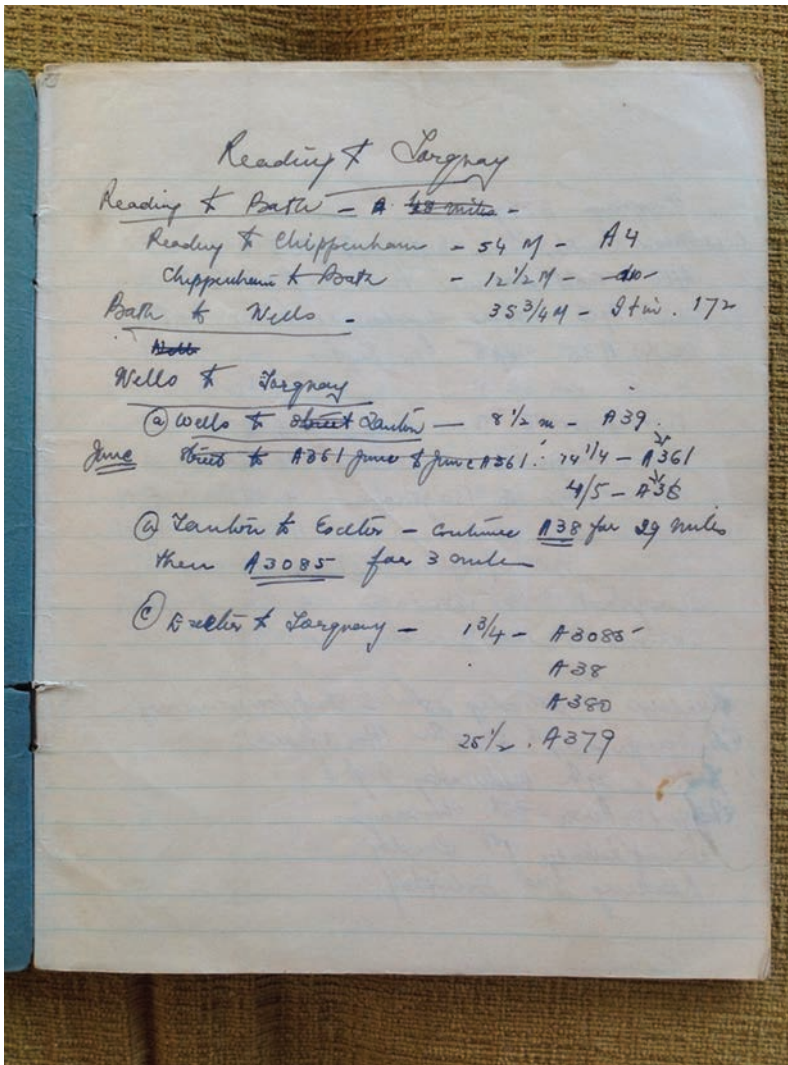 Reading to Torquay
Reading to Bath - A 48 miles -
Reading to Chippenham - 54 M - A4
Chippenham to Bath - 12 1/2 M - do
Bath to Wells - 35 3/4 M - . 172
Wells
Wells to Torquay
(a) Wells to Street Taunton — 8 1/2 m - A39.
June Street to A361 June & June A361: 14 1/4 - A361
4/5 - A38
Taunton to Exeter - Continue A38 for 29 miles
then A3085 for 3 miles
(c) Exeter to Torquay - 1 3/4 - A3085
A38
A380
25 1/2 . A379